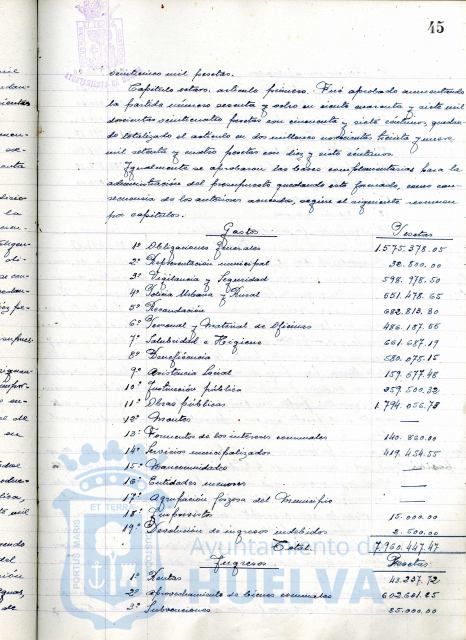 45
veinticinco mil pesetas.
Capítulo octavo, artículo primero. Fué aprobado aumentando
la partida número sesenta y ocho en ciento cuarenta y siete mil
doscientas veinticuatro pesetas con cincuenta y siete céntimos, quedan-
do totalizado el artículo en dos millones novecientas treinta y nueve
mil setenta y cuatro pesetas con diez y siete céntimos.
Igualmente se aprobaron las bases complementarias para la
administración del presupuesto quedando este formado, como con-
secuencia de los anteriores acuerdos, según el siguiente resumen
por capítulos.
Gastos Pesetas
1º Obligaciones generales 1.575.378.05
2º Representación municipal 32.800.00
3º Vigilancia y Seguridad 598.778.50
4º Policía Urbana y Rural 651.478.65
5º Recaudación 682.813.30
6º Personal y Material de Oficinas 486.187.66
7º Salubridad e Higiene 661.687.19
8º Beneficencia 580.075.15
9º Asistencia Social 159.677.48
10º Instrucción pública 259.500.32
11º Obras públicas 1.794.056.73
12º Montes —
13º Fomento de los intereses comunales 140.860.00
14º Servicios municipalizados 419.454.55
15º Mancomunidades —
16º Entidades menores —
17º Agrupación forzosa del Municipio —
18º Imprevistos 15.000.00
19º Devolución de ingresos indebidos 2.500.00
Total 7.960.447.47
Ingresos Pesetas
1º Rentas 43.237.72
2º Aprovechamiento de bienes comunales 602.601.25
3º Subvenciones 25.000.00
Ayuntamiento de
HUELVA
PORTUS MARIS ET TERRAE